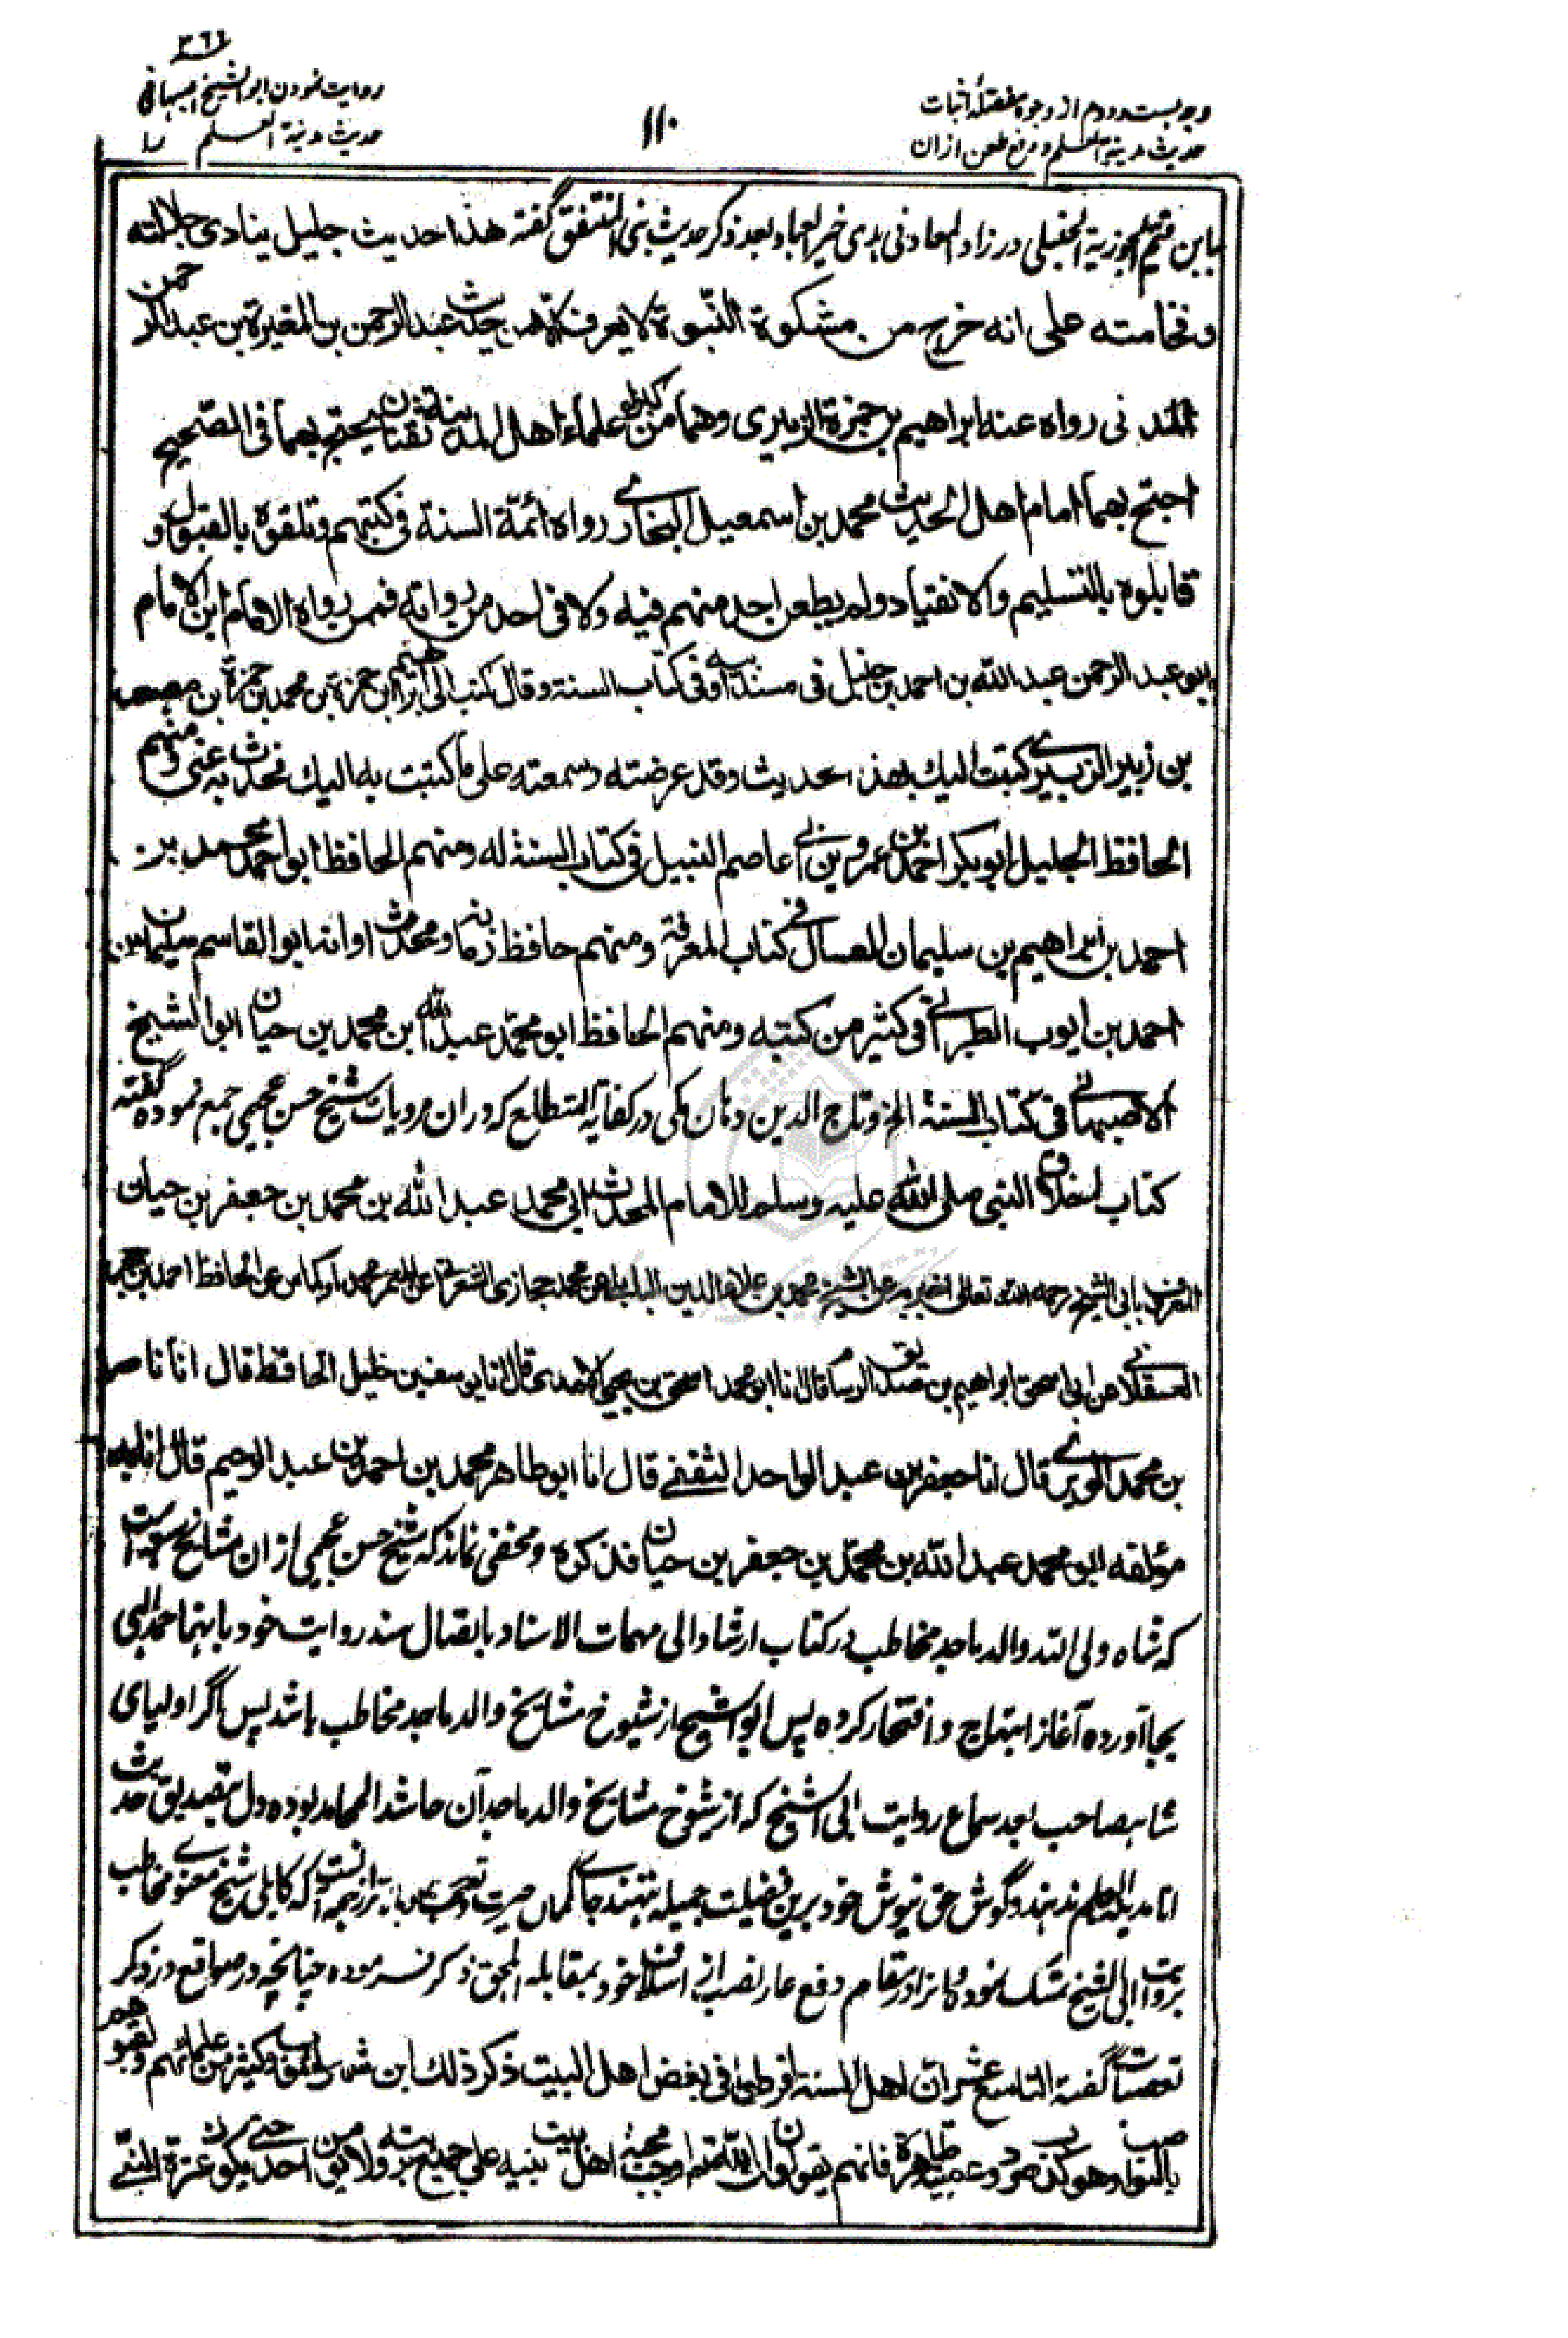 ٣٦١
روایت نمودن ابوالشیخ اصبهانی
حدیث مدینة العلم را
١١٠
وجه بست و دوم از وجوه مفصله اثبات
حدیث مدینة العلم و دفع طعن از ان
ابن قیم الجوزیة الحنبلی در زاد المعاد فی هدی خیر العباد بعد ذکر حدیث بنی المنتفق گفته هذا حدیث جلیل ینادی جلالته
وفخامته علی انه خرج من مشکوة النبوة لا یعرف الا من حدیث عبد الرحمن بن المغیرة بن عبد الرحمن
المدنی رواه عنه ابراهیم بن حمزة الزبیری وهما من کبار علماء اهل المدینة ثقتان یحتج بهما فی الصحیح
احتج بهما امام اهل الحدیث محمد بن اسمعیل البخاری رواه ائمة السنة فی کتبهم وتلقوه بالقبول و
قابلوه بالتسلیم والانقیاد ولم یطعن احد منهم فیه ولا فی احد من رواته فممن رواه الامام ابن الامام
ابو عبد الرحمن عبد الله بن احمد بن حنبل فی مسند ابیه وفی کتاب السنة وقال کتب الی ابراهیم بن حمزة بن محمد بن حمزة بن مصعب
بن زبیر الزبیری کتبت الیك بهذا الحدیث وقد عرضته وسمعته علی ما کتبت به الیك فحدث به عنی ومنهم
الحافظ الجلیل ابو بکر احمد بن عمرو بن ابی عاصم النبیل فی کتاب السنة له ومنهم الحافظ ابو احمد محمد بن
احمد بن ابراهیم بن سلیمان العسال فی کتاب المعرفة ومنهم حافظ زمانه ومحدث اوانه ابو القاسم سلیمان بن
احمد بن ایوب الطبرانی فی کثیر من کتبه ومنهم الحافظ ابو محمد عبد الله ابن محمد بن حیان ابو الشیخ
الاصبهانی فی کتاب السنة الخ وتاج الدین دهان مکی در کفایة المتطلع که دران مرویات شیخ حسن عجیمی جمع نموده گفته
کتاب اخلاق النبی صلی الله علیه وسلم للامام المحدث ابی محمد عبد الله بن محمد بن جعفر بن حیان
المعروف بابی الشیخ رحمه الله تعالی اخبر به عن الشیخ محمد بن علاء الدین البابلی عن محمد حجازی الشعرانی عن المعمر محمد ارکماس عن الحافظ احمد بن حجر
العسقلانی عن ابی اسحق ابراهیم بن صدیق الرسام قال انا ابو محمد اسحق بن یحیی الامدی قال انا یوسف بن خلیل الحافظ قال انا ناصر
بن محمد الویری قال انا جعفر بن عبد الواحد الثقفی قال انا ابو طاهر محمد بن احمد بن عبد الرحیم قال انا به
مؤلفه ابو محمد عبد الله بن محمد بن جعفر بن حیان فذکره ومخفی نماند که شیخ حسن عجیمی ازان مشایخ سبعه است
که شاه ولی الله والد ماجد مخاطب در کتاب ارشاد الی مهمات الاسناد باتصال سند روایت خود باینها حمد الهی
بجا آورده آغاز ابتهاج و افتخار کرده پس ابو الشیخ از شیوخ مشایخ والد ماجد مخاطب باشد پس اگر اولیای
شاهصاحب بعد سماع روایت ابی الشیخ که از شیوخ مشایخ والد ماجد آن حاشد المحامد بوده دل بتصدیق حدیث
انا مدینة العلم ندهند و گوش حق نیوش خود برین فضیلت جمیله ننهند جای کمال حیرت و تعجب باشد و بالاتر از همه آنست که کابلی شیخ معنوی مخاطب
بروایت ابی الشیخ تمسک نموده و آنرا در مقام دفع عار نصب از اسلاف خود بمقابله اهل حق ذکر فرموده چنانچه در صواقع در ذکر
تعصبات گفته التاسع عشر ان اهل السنة افرطوا فی بغض اهل البیت ذکر ذلك ابن شهر آشوب وکثیر من علمائهم ولقبوهم
بالنواصب وهو کذب صرد وعصبیة ظاهرة فانهم یقولون ان الله تعالی اوجب محبة اهل بیت نبیه علی جمیع بریته ولا یؤمن احد حتی یکون عترة النبی